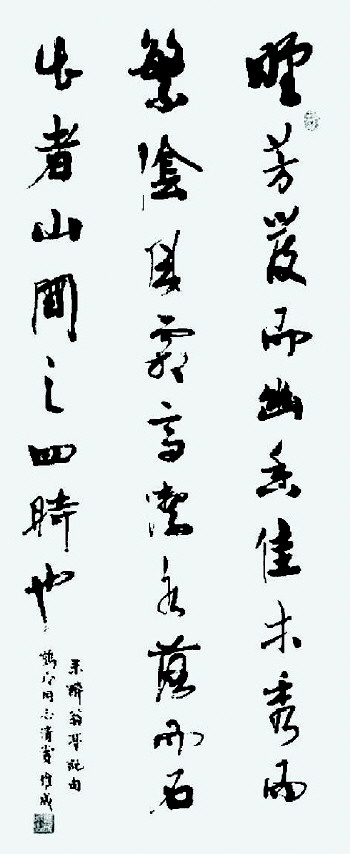 野芳發而幽香佳木秀而
繁陰風霜高潔水落而石
出者山間之四時也
醉翁亭記句
同志清賞